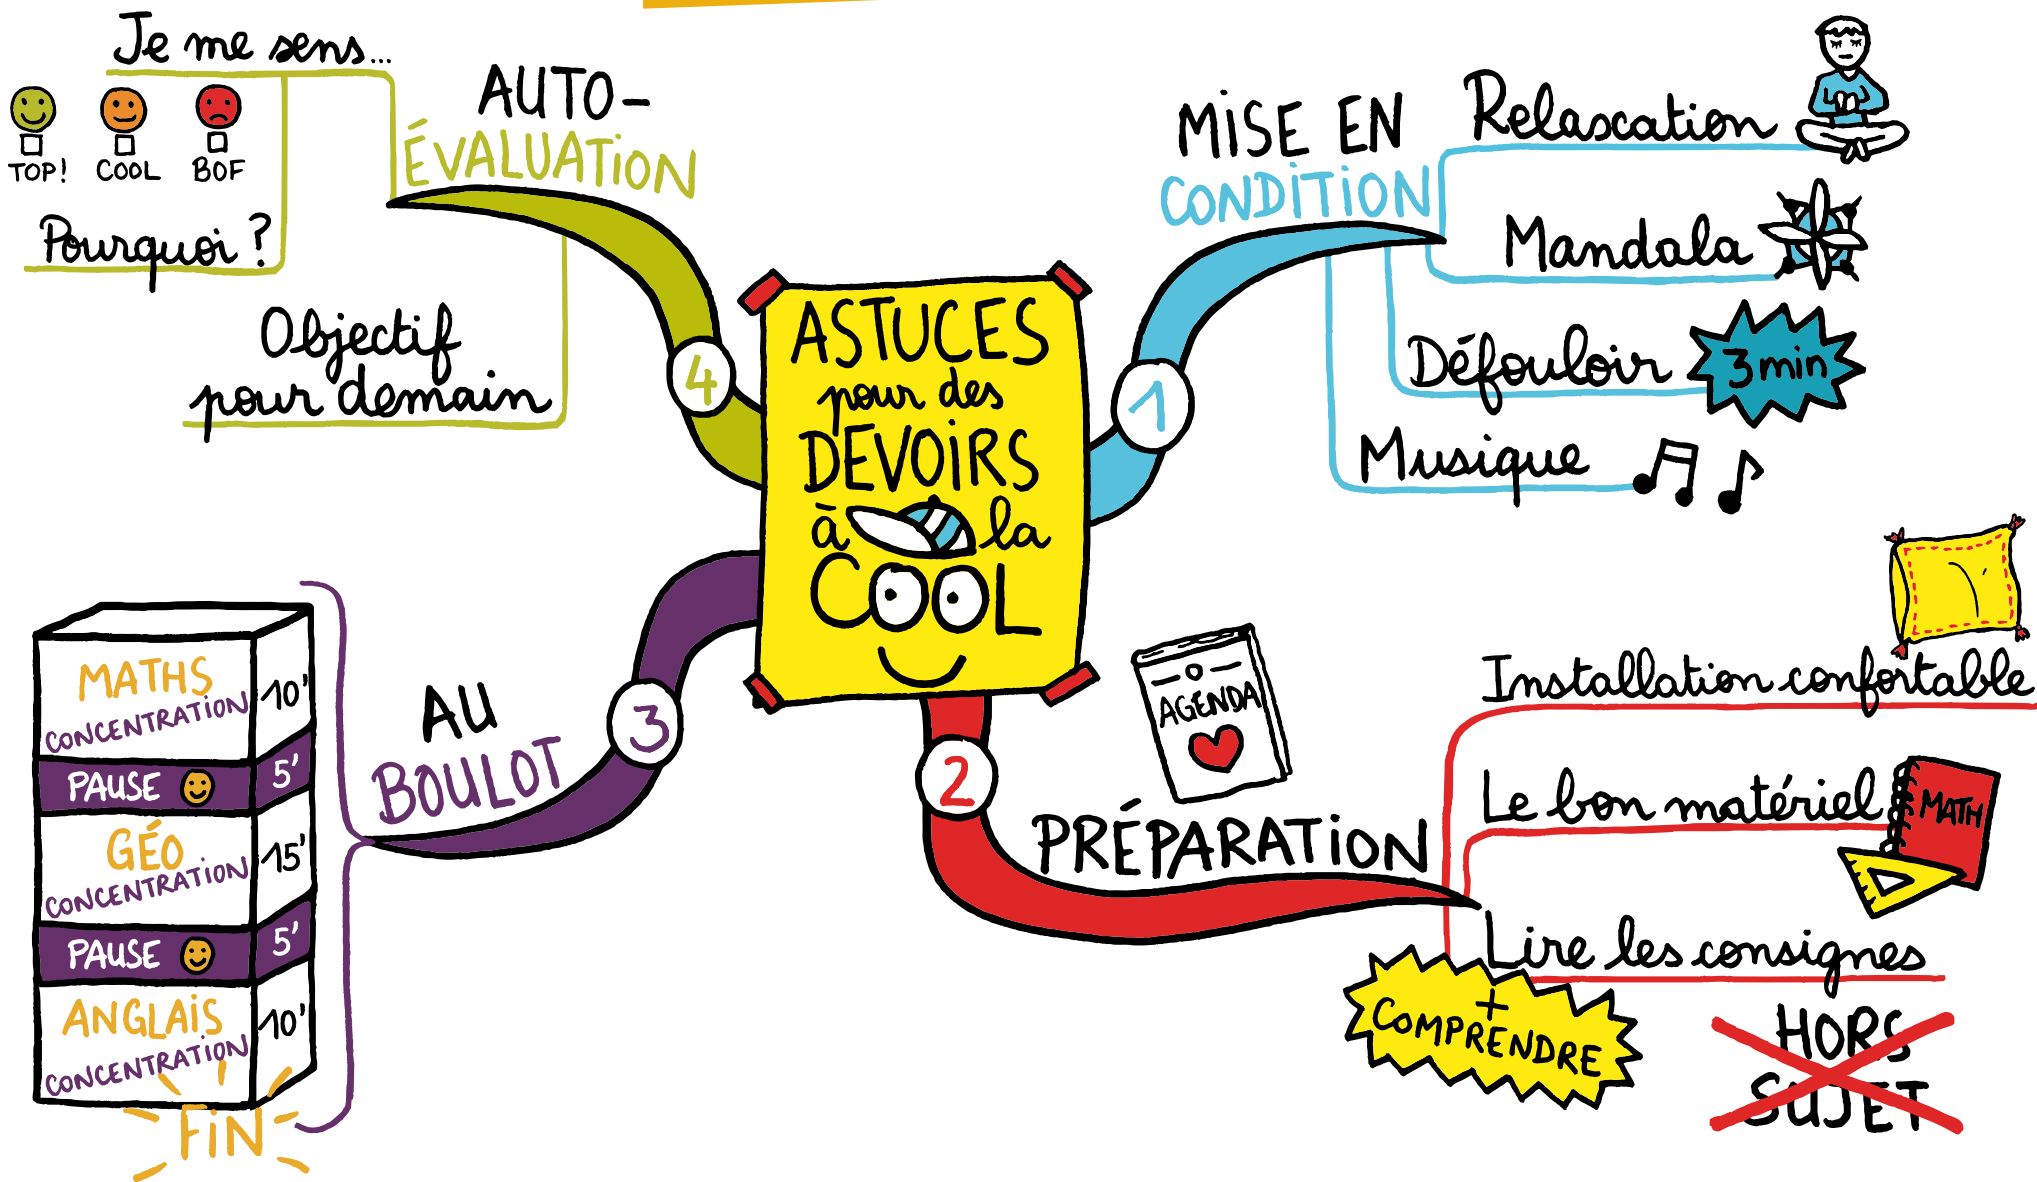 ASTUCES
pour des
DEVOIRS
à la
COOL
1
MISE EN
CONDITION
Relaxation
Mandala
Défouloir 3 min
Musique
2
PRÉPARATION
AGENDA
Installation confortable
Le bon matériel
MATH
Lire les consignes
+
COMPRENDRE
HORS
SUJET
3
AU
BOULOT
MATHS
CONCENTRATION 10'
PAUSE 5'
GÉO
CONCENTRATION 15'
PAUSE 5'
ANGLAIS
CONCENTRATION 10'
FIN
4
AUTO-
ÉVALUATION
Je me sens...
TOP! COOL BOF
Pourquoi ?
Objectif
pour demain